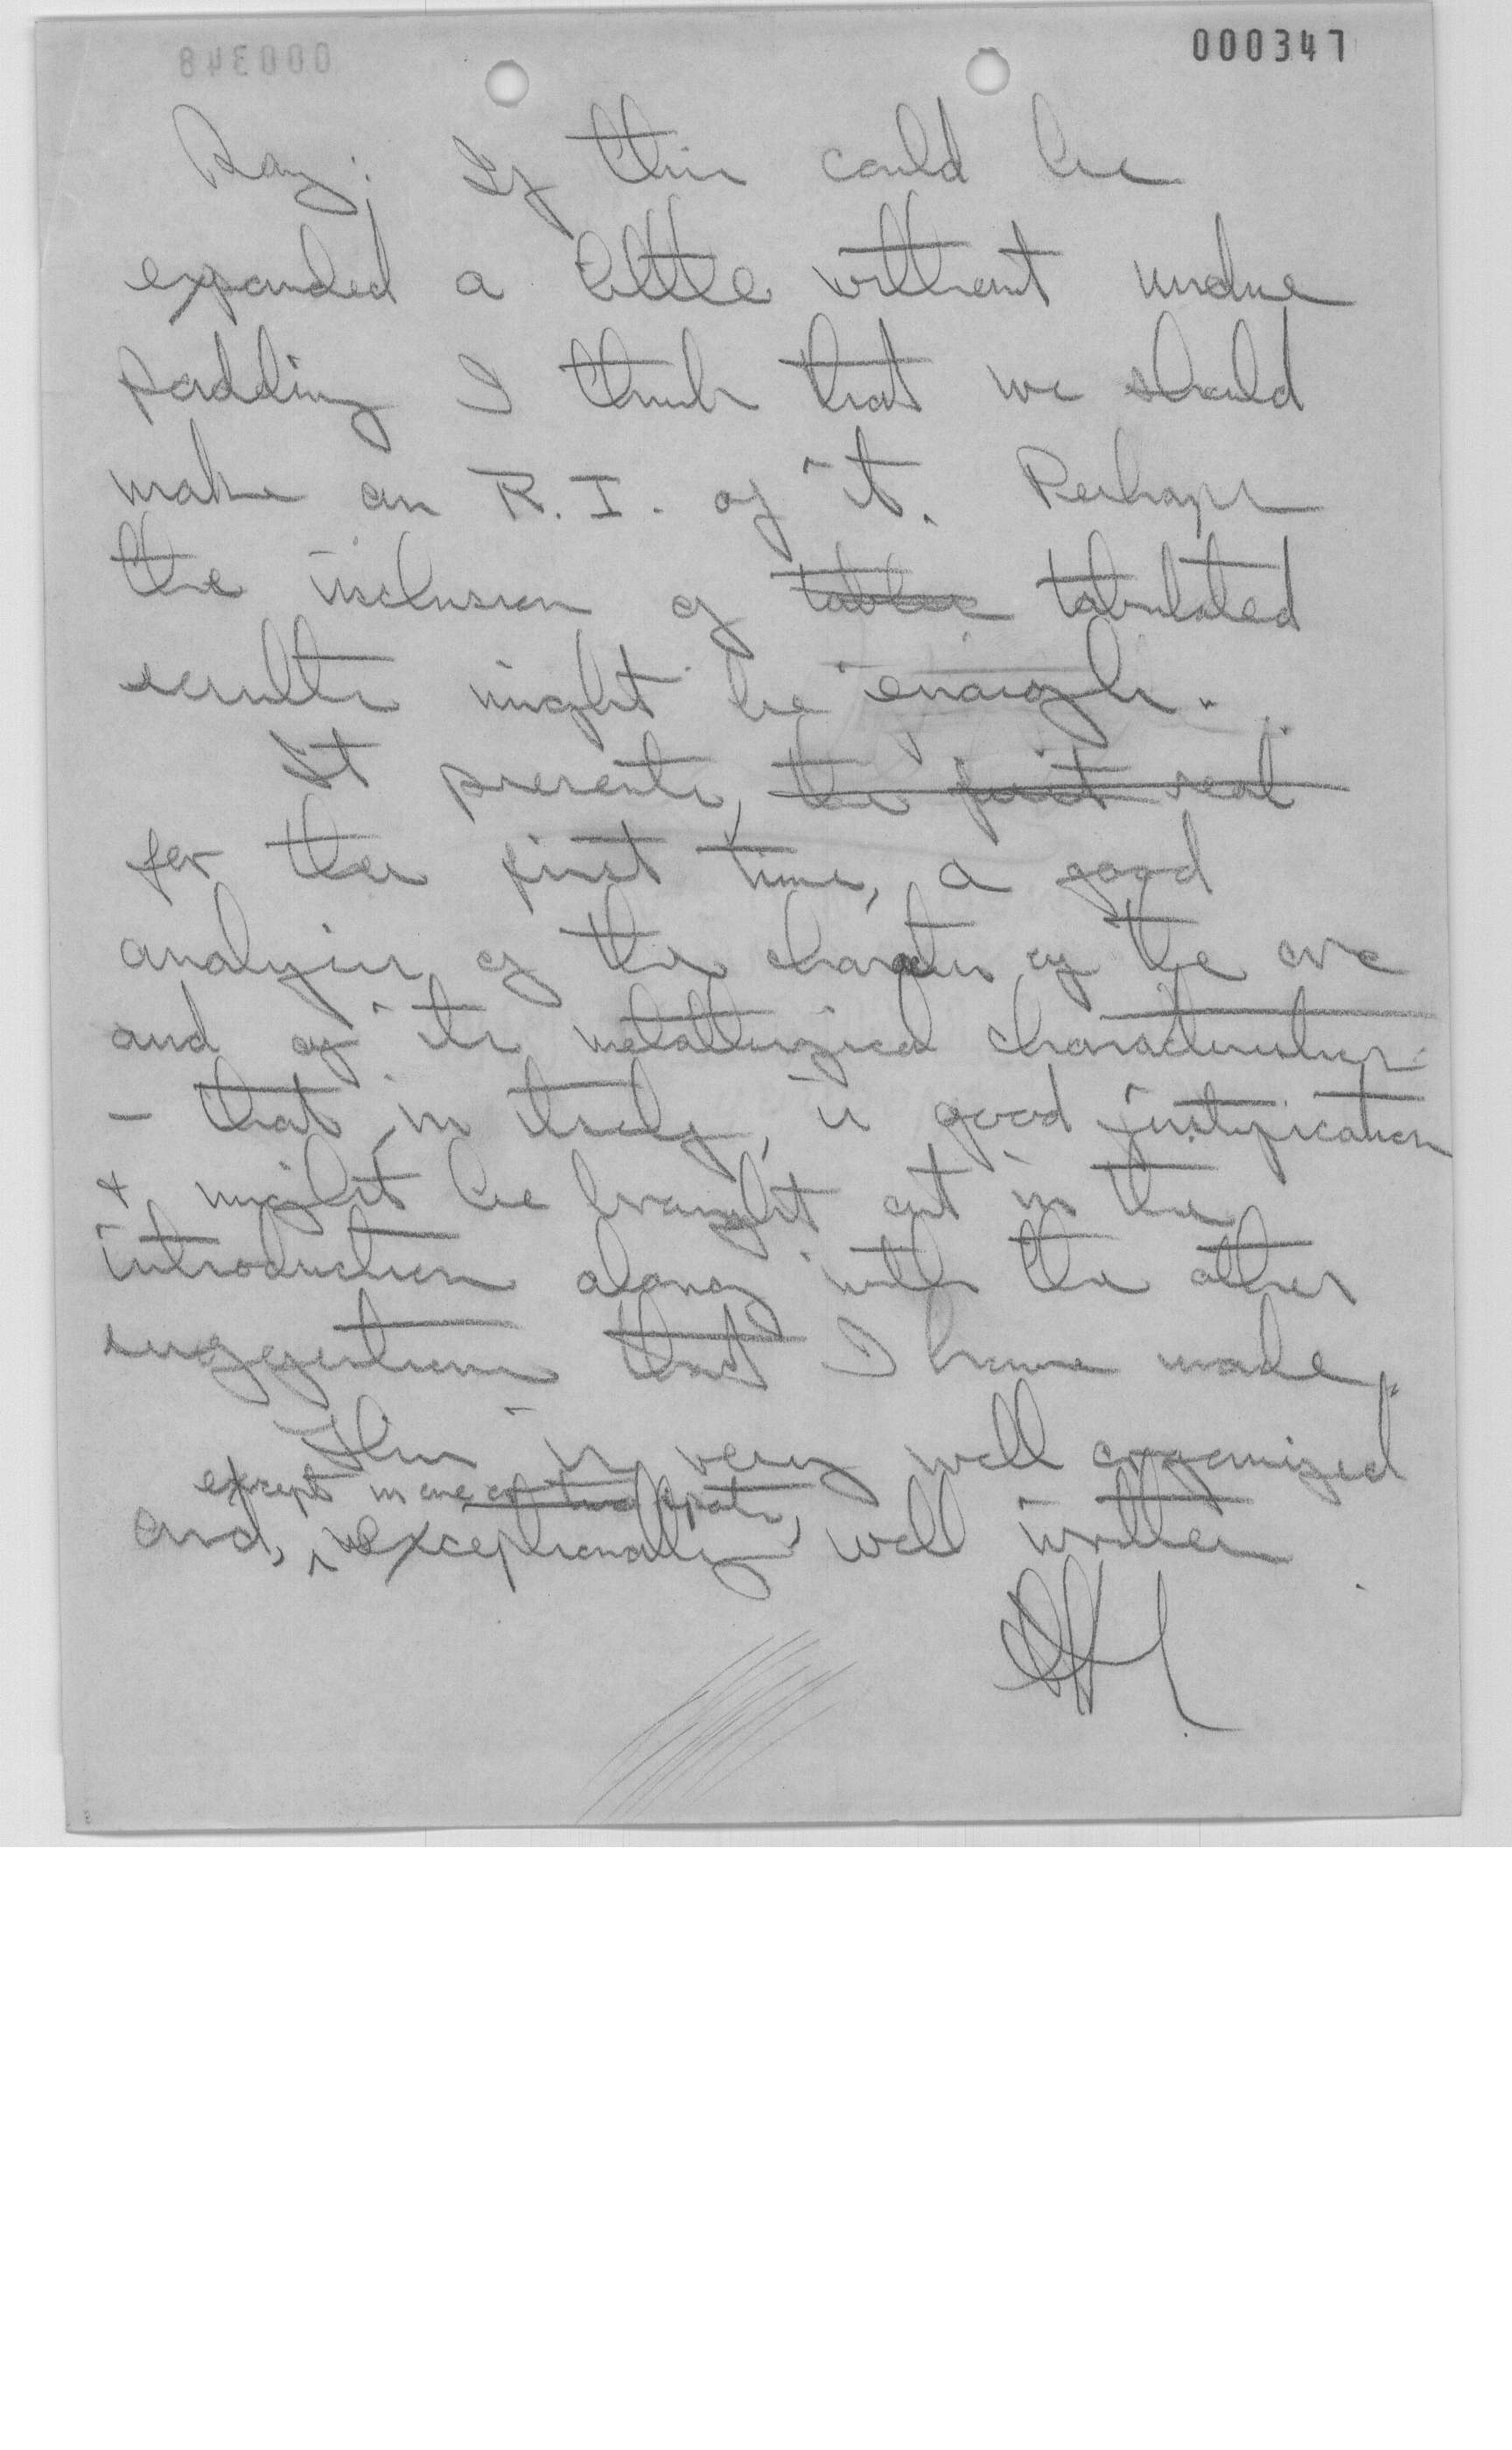 000347
Ray: If this could be
expanded a little without undue
padding I think that we should
make an R. I. of it. Perhaps
the inclusion of tables tabulated
results might be enough.
It presents, the first real
for the first time, a good
analysis of the character of the ore
and of its metallurgical characteristics
- that, in itself, is good justification
+ might be brought out in the
introduction along with the other
suggestions that I have made.
This is very well organized
except in one or two spots,
and, exceptionally well written